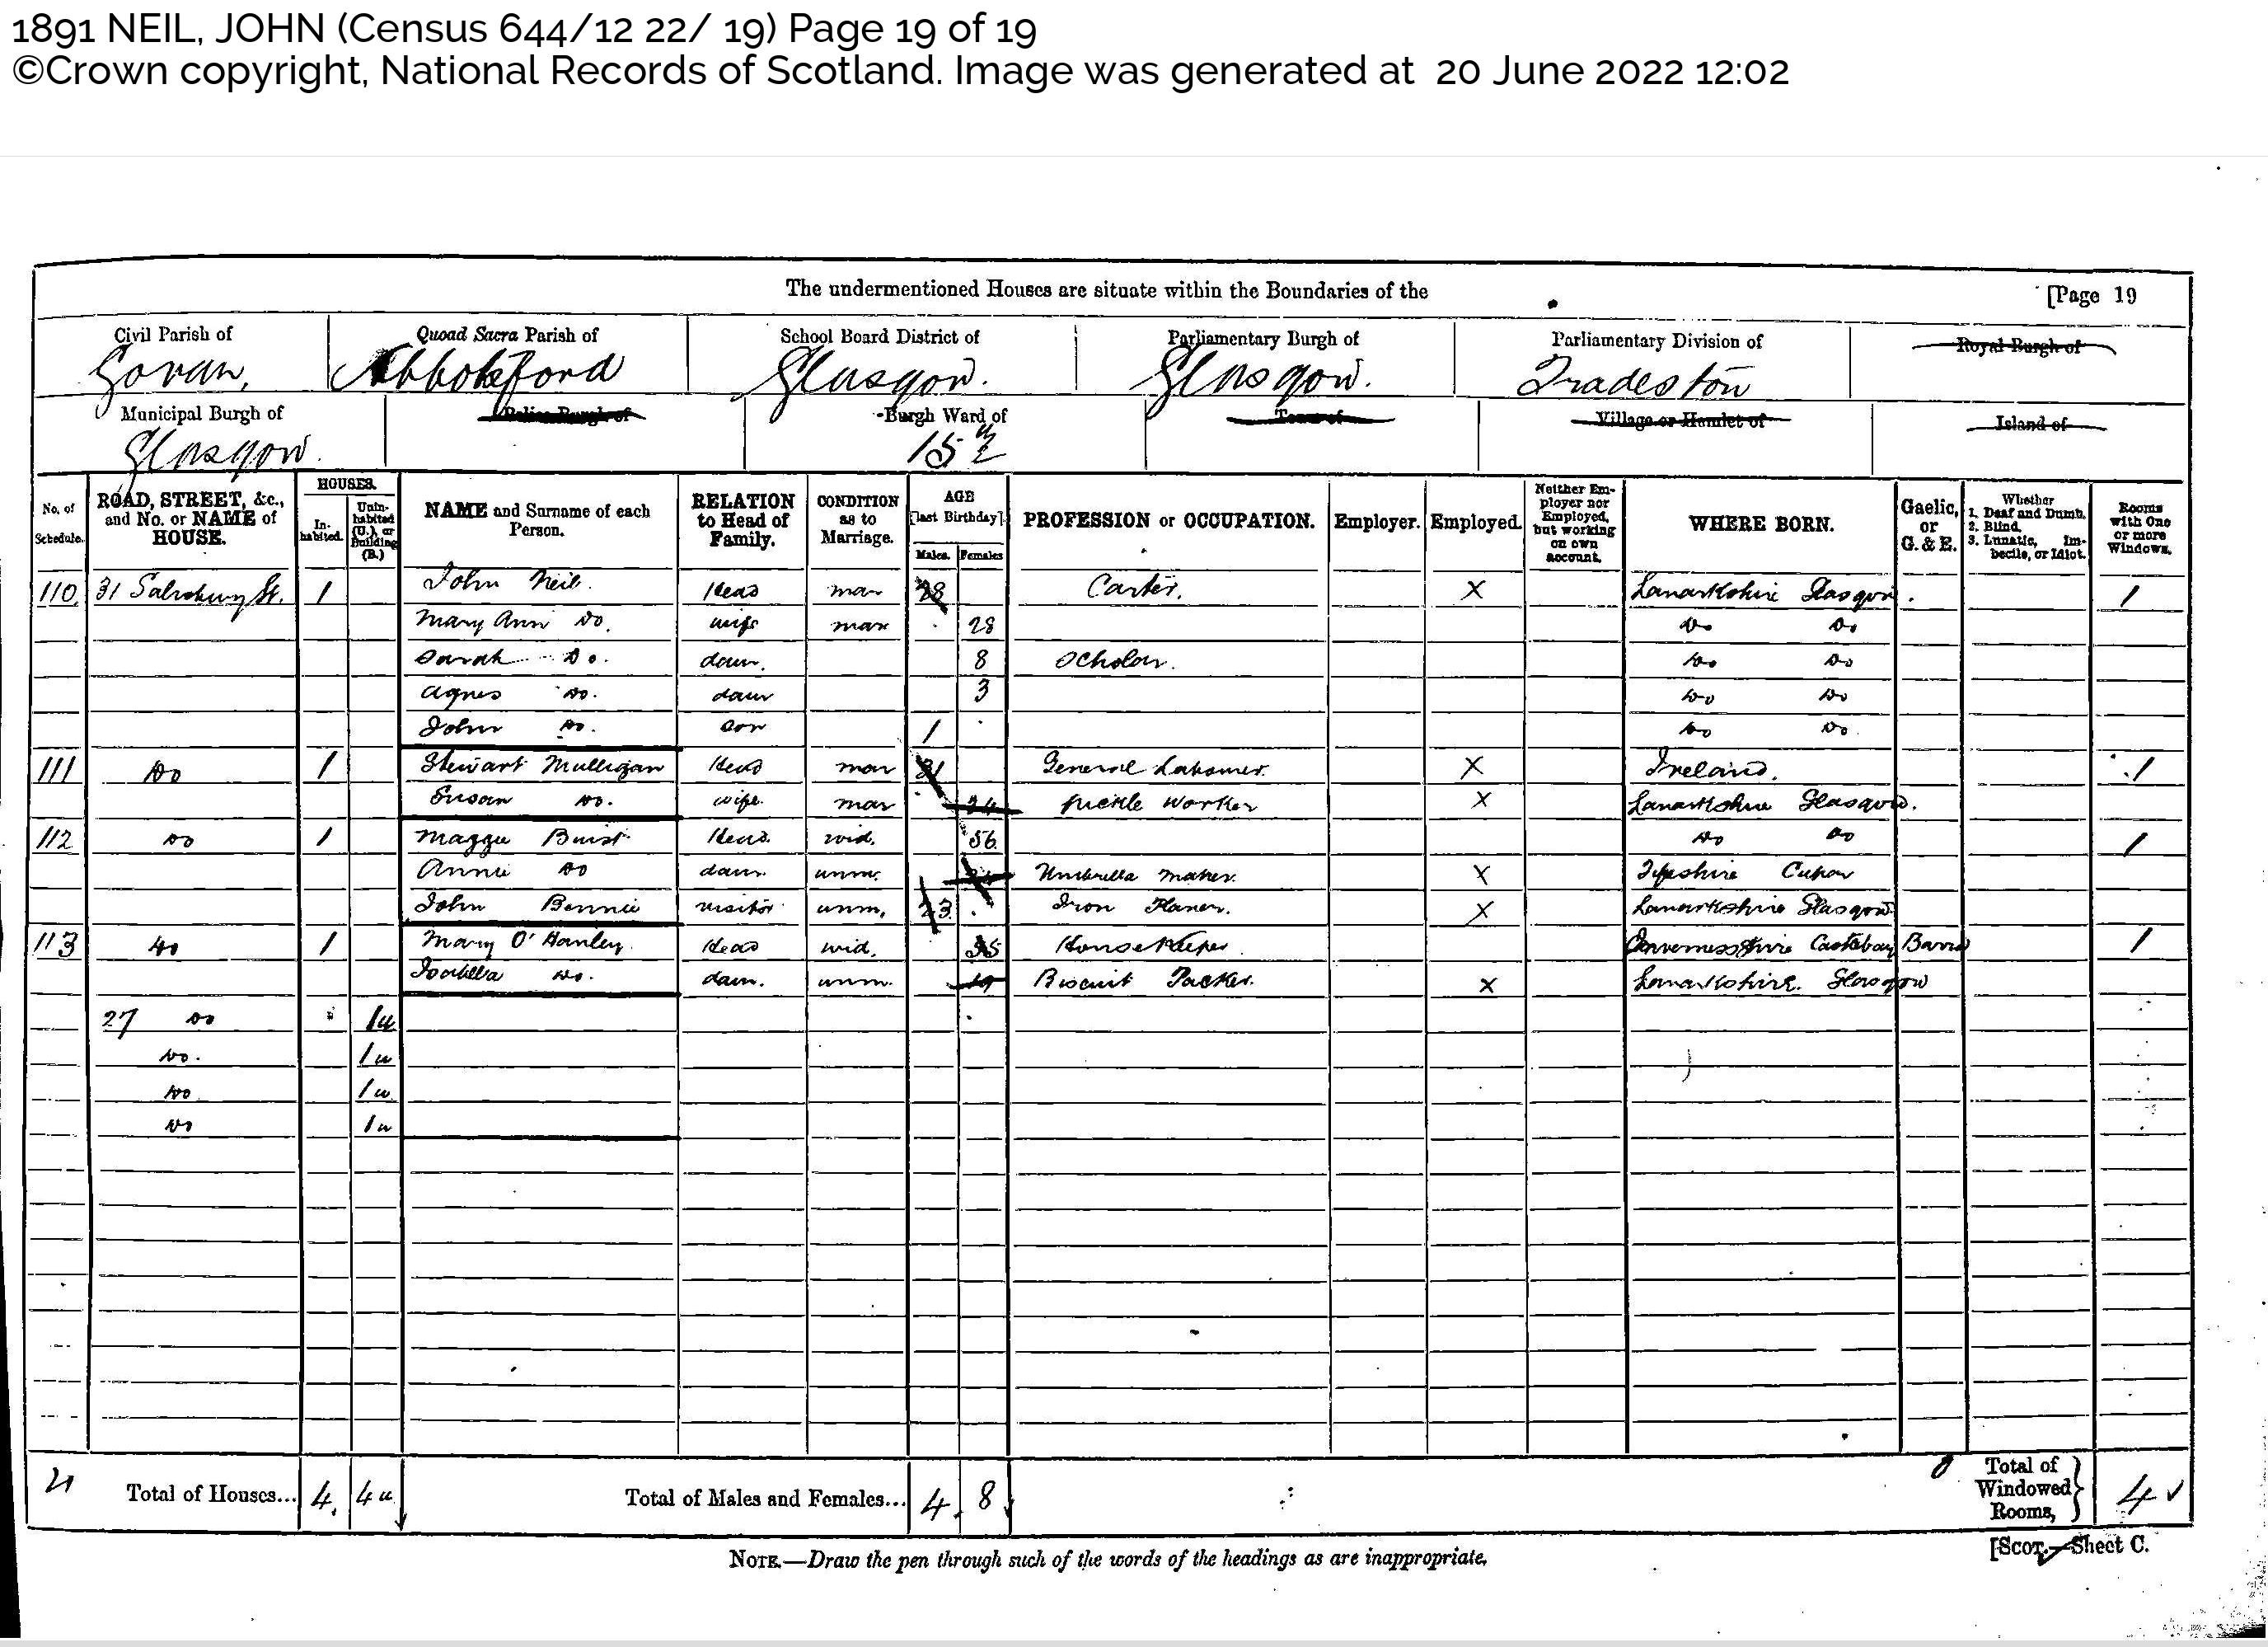 1891 NEIL, JOHN (Census 644/12 22/ 19) Page 19 of 19
©Crown copyright, National Records of Scotland. Image was generated at 20 June 2022 12:02
The undermentioned Houses are situate within the Boundaries of the [Page 19
Civil Parish of Quoad Sacra Parish of School Board District of Parliamentary Burgh of Parliamentary Division of Royal Burgh of
Govan, Abbotsford Glasgow. Glasgow. Tradeston
Municipal Burgh of Police Burgh of Burgh Ward of Town of Village or Hamlet of Island of
Glasgow. 15th
No. of Schedule. ROAD, STREET, &c., and No. or NAME of HOUSE. HOUSES. Inhabited. Uninhabited (U.), or Building (B.) NAME and Surname of each Person. RELATION to Head of Family. CONDITION as to Marriage. AGE [last Birthday]. Males. Females PROFESSION or OCCUPATION. Employer. Employed. Neither Employer nor Employed, but working on own account. WHERE BORN. Gaelic, or G. & E. Whether 1. Deaf and Dumb. 2. Blind. 3. Lunatic, Imbecile, or Idiot. Rooms with One or more Windows.
110 31 Salisbury St. 1 John Neil. Head mar 28 Carter. X Lanarkshire Glasgow. 1
Mary Ann Do. wife mar 28 Do Do
Sarah Do. daur. 8 Scholar. Do Do
Agnes Do. daur 3 Do Do
John Do. Son 1 Do Do
111 Do 1 Stewart Mulligan Head mar 31 General Labourer. X Ireland. 1
Susan Do. wife. mar 24 Pickle Worker X Lanarkshire Glasgow.
112 Do 1 Maggie Buist Head. wid. 56 Do Do 1
Annie Do daur. unm. Umbrella Maker. X Fifeshire Cupar
John Bennie visitor unm. 23 Iron Planer. X Lanarkshire Glasgow
113 Do 1 Mary O'Hanley. Head wid. 55 Housekeeper Invernessshire Castlebay Barra 1
Isabella Do. daur. unm. 19 Biscuit Packer. X Lanarkshire. Glasgow
27 Do 1u
Do. 1u
Do 1u
Do 1u
Total of Houses... 4. 4u Total of Males and Females... 4. 8 Total of Windowed Rooms, 4 ✓
NOTE.—Draw the pen through such of the words of the headings as are inappropriate. [SCOT.—Sheet C.